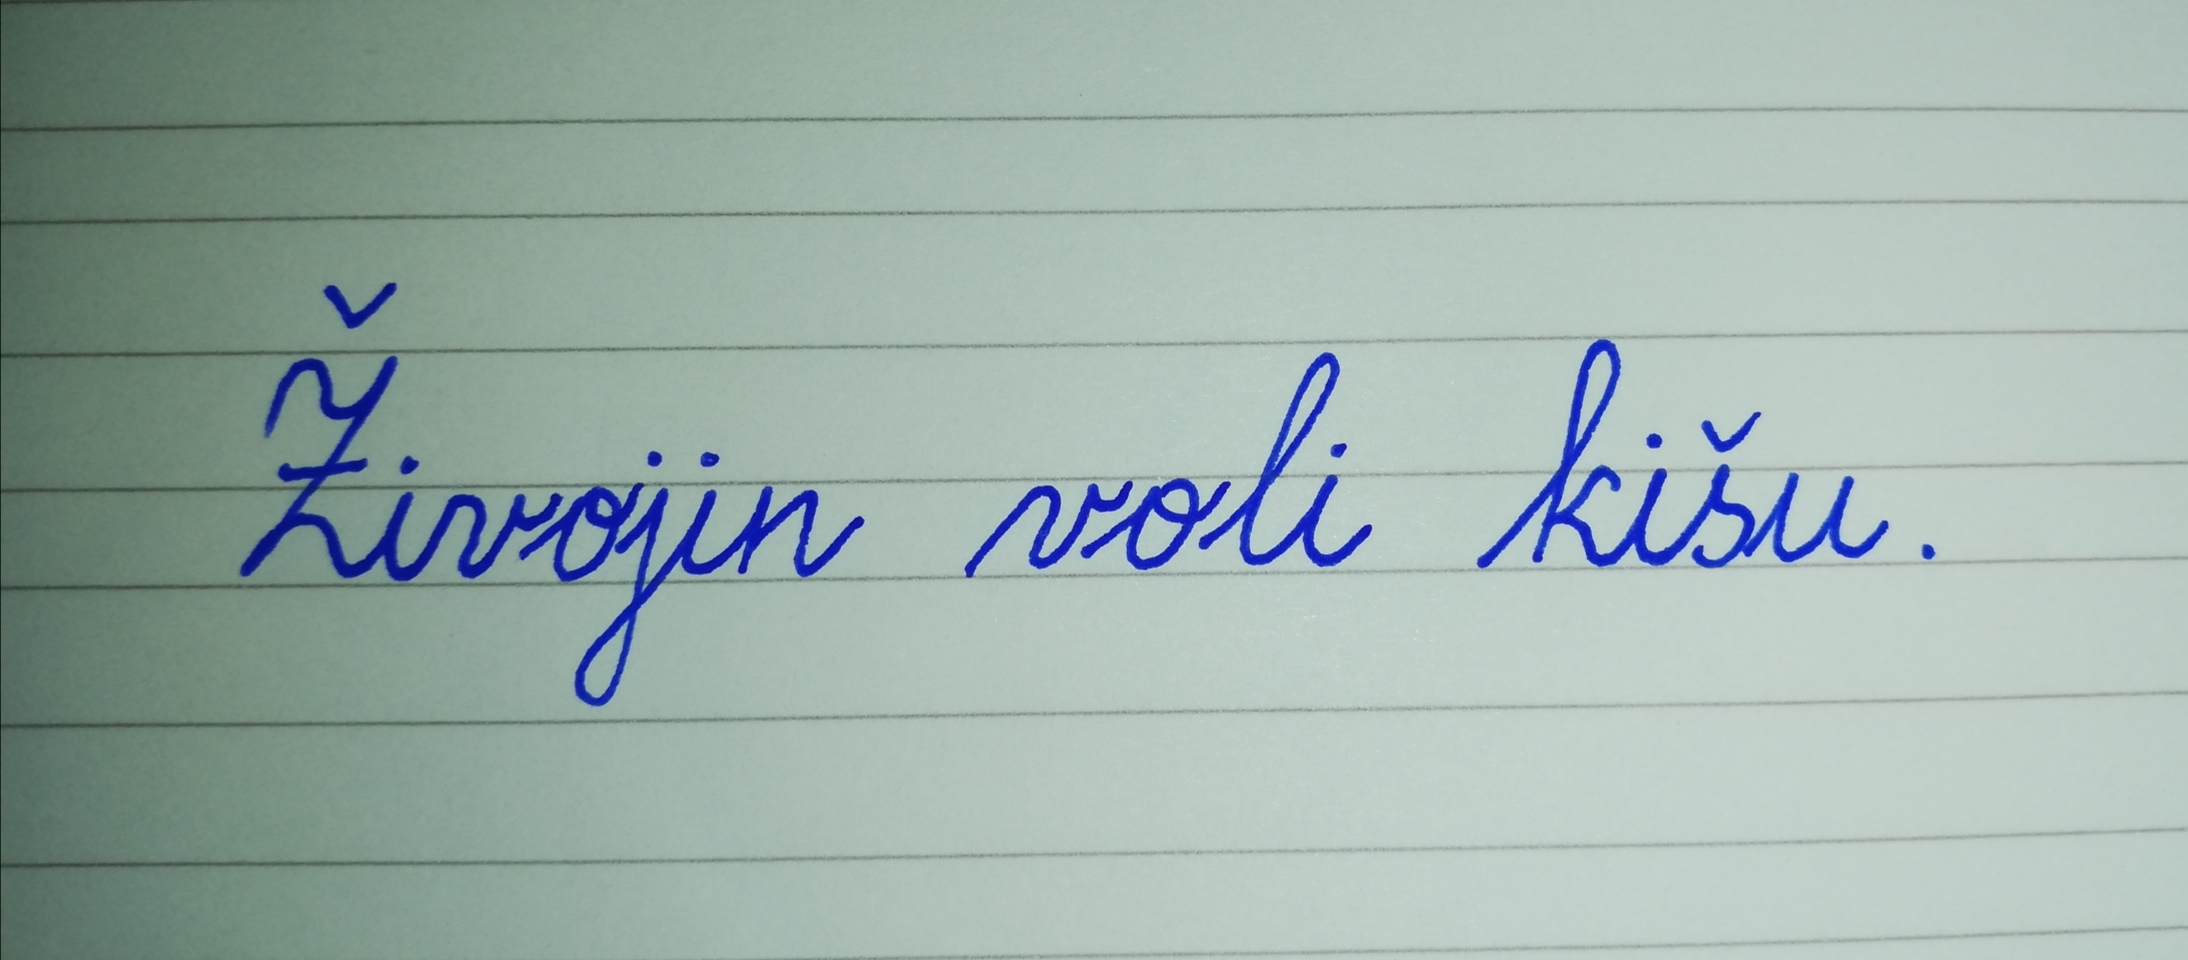 Živojin voli kišu.